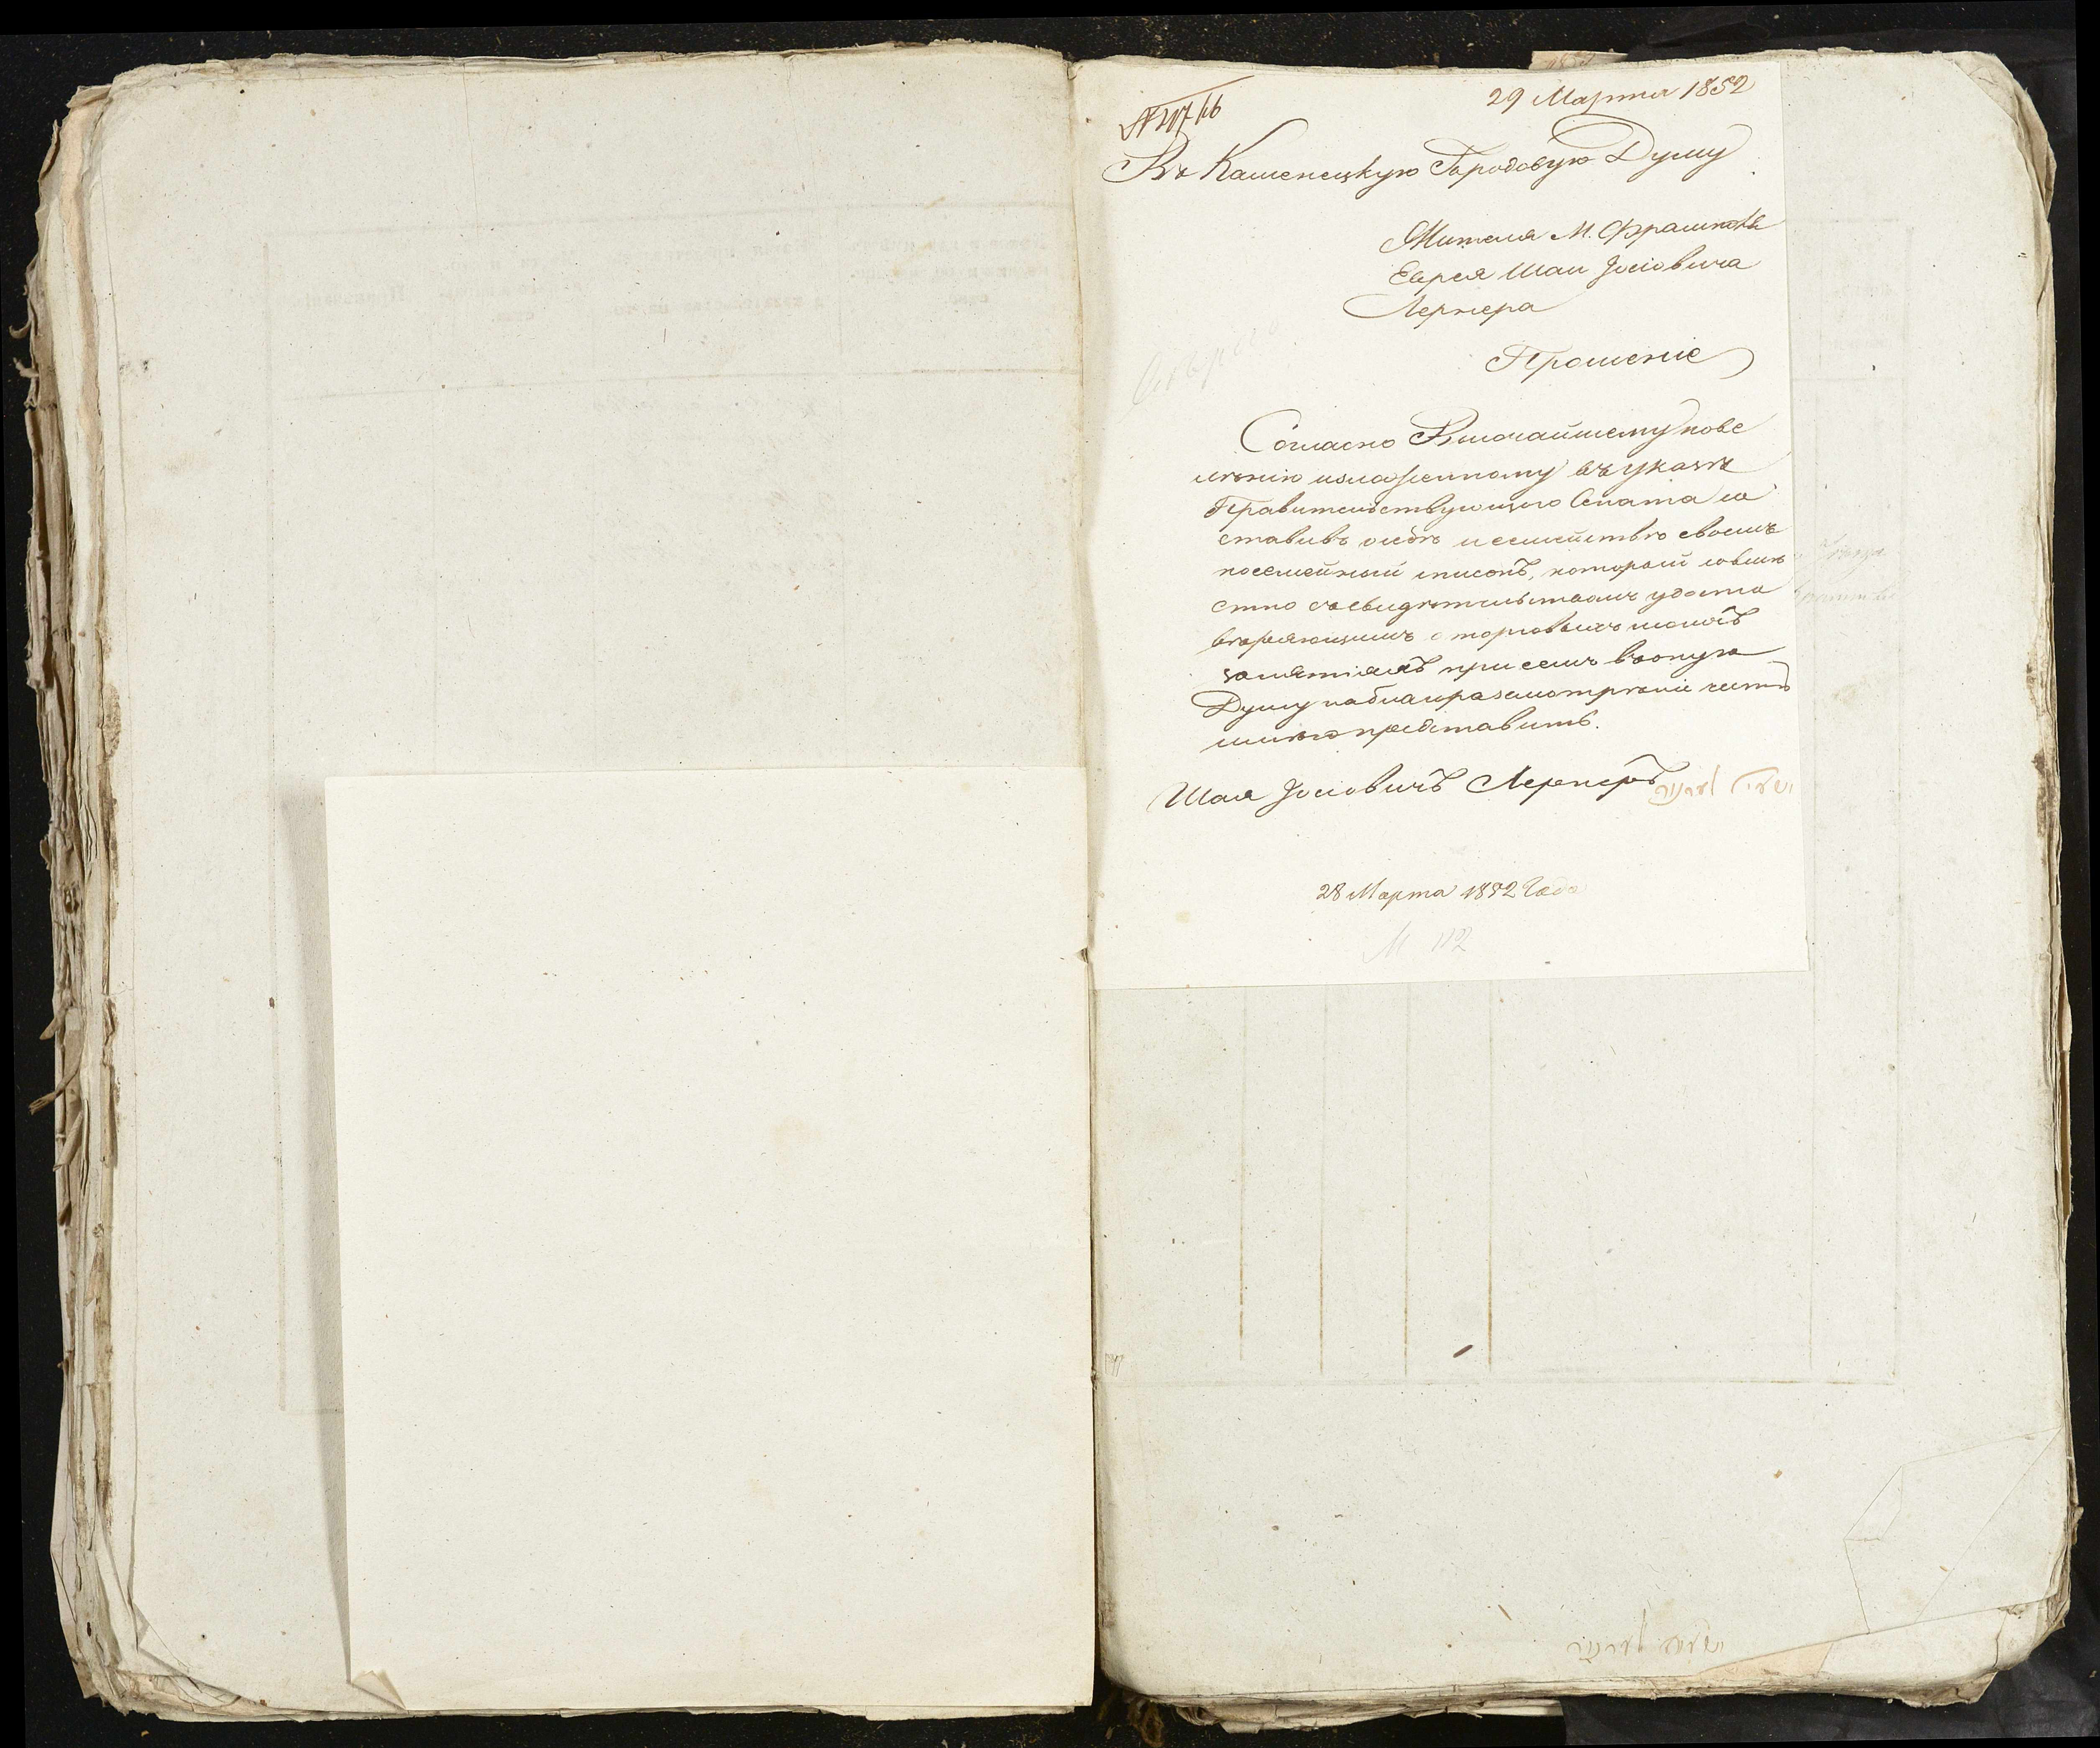 29 Марта 1852
Въ Каменецкую Городовую Думу
Жителя М. Фрампола
Еврея Шаи Іосіовича
Лернера
Прошеніе
Согласно Высочайшему пове
лѣнію изложенному въ указѣ
Правительствующаго Сената со
ставивъ о себѣ и семействѣ своемъ
посемейный списокъ, который совмѣ
стно съ свидѣтельствомъ удосто
вѣряющимъ о торговыхъ моихъ
занятіяхъ при семъ въ оную
Думу на благоразсмотрѣніе честь
имѣю представить.
Шая Іосіовичъ Лернеръ ישעי' לערנער
28 Марта 1852 Года
ישעיה לערנער